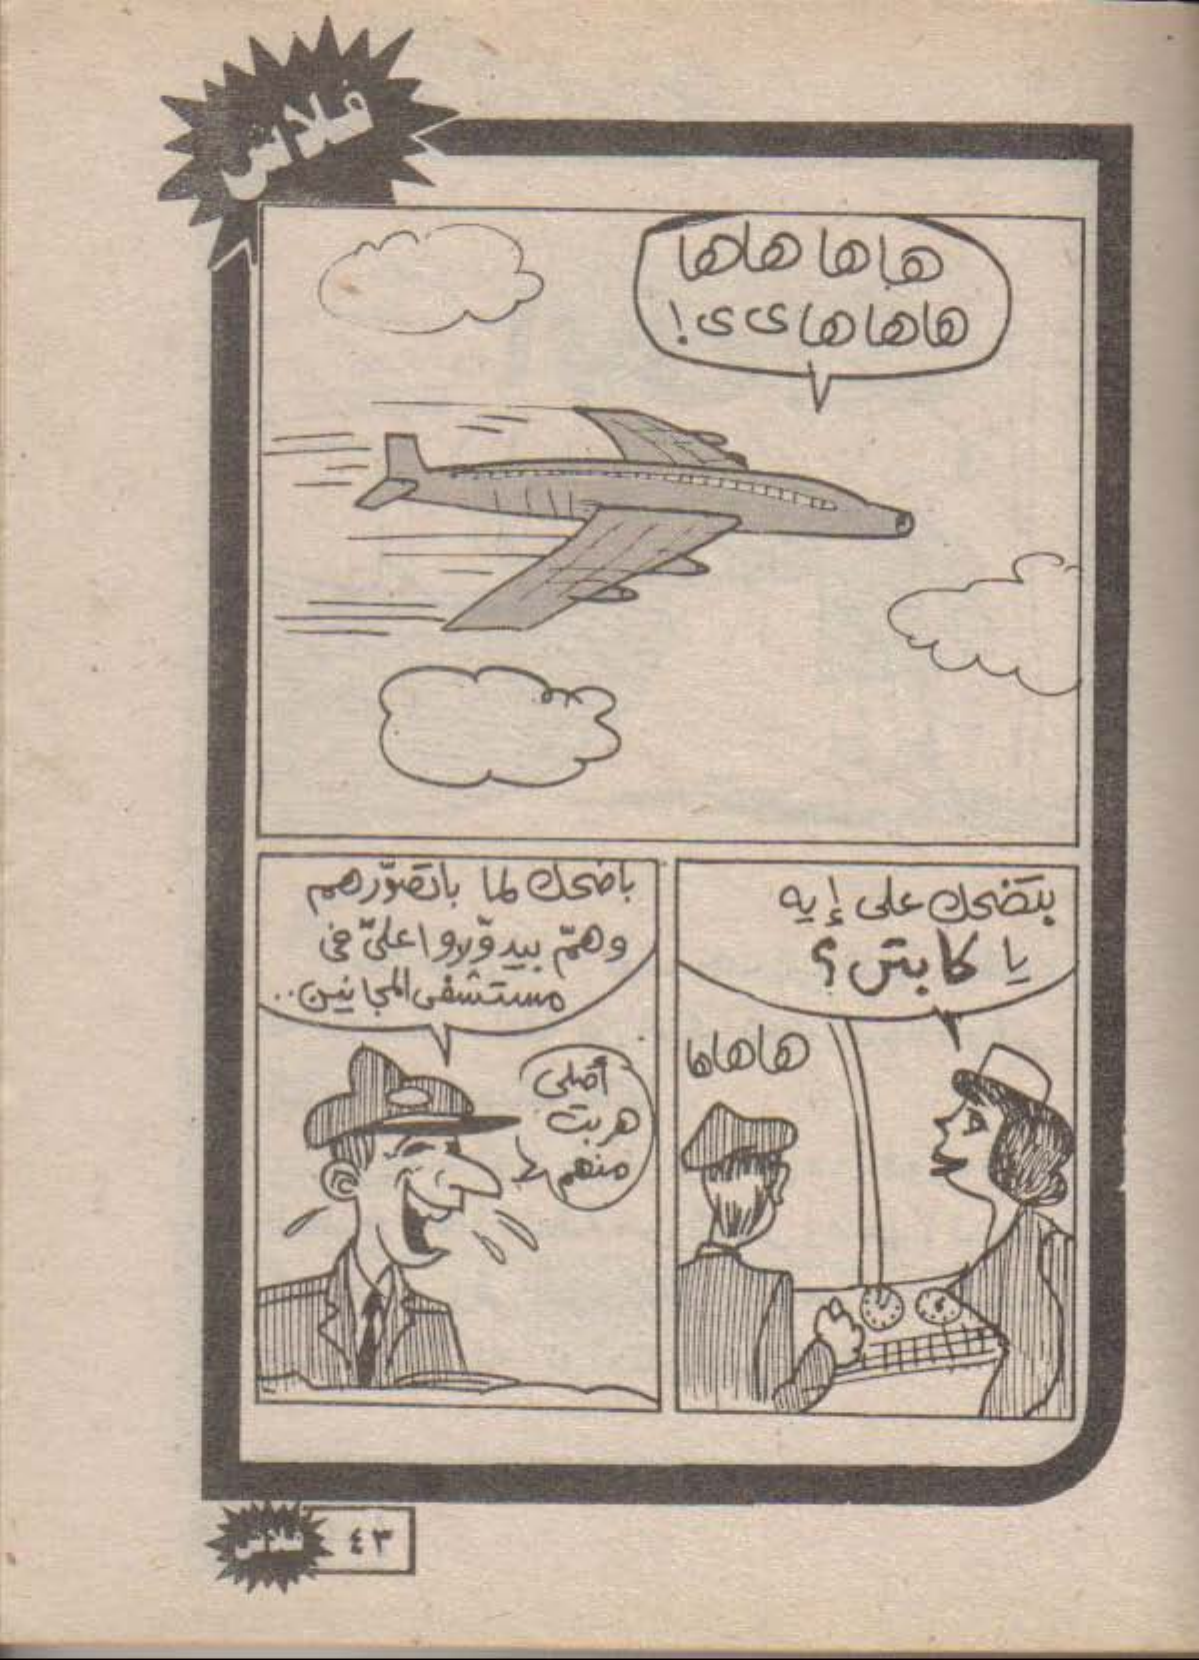 فلاش
هاها هاها
هاهاهاى ى!
بتضحك على إيه
يا كابتن؟
هاهاها
باضحك لما باتصوّرهم
وهمّ بيدوّروا علىّ فى
مستشفى المجانين..
أصلى
هربت
منهم
٤٣
فلاش